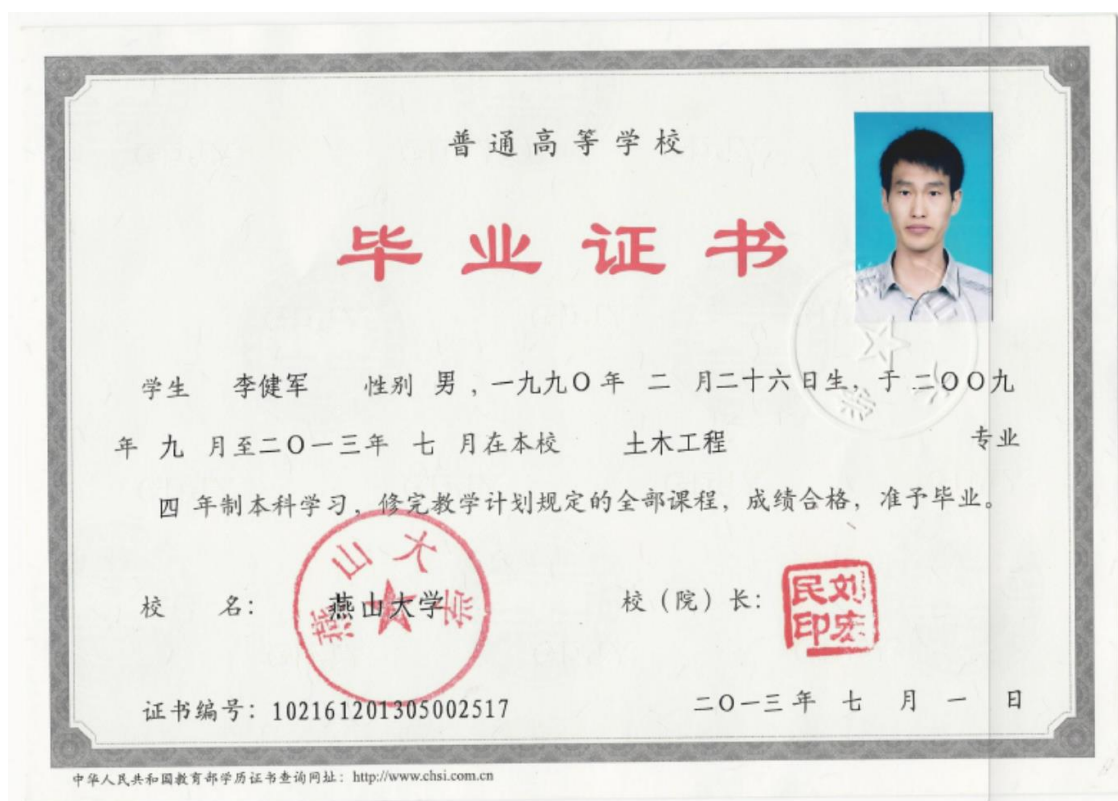 普通高等学校
毕业证书
学生 李健军 性别 男，一九九〇年 二 月二十六日生，于二〇〇九
年 九 月至二〇一三年 七 月在本校 土木工程 专业
四 年制本科学习，修完教学计划规定的全部课程，成绩合格，准予毕业。
燕山大学
校 名： 燕山大学 校（院）长： 刘宏民印
证书编号：102161201305002517 二〇一三年 七 月 一 日
中华人民共和国教育部学历证书查询网址：http://www.chsi.com.cn